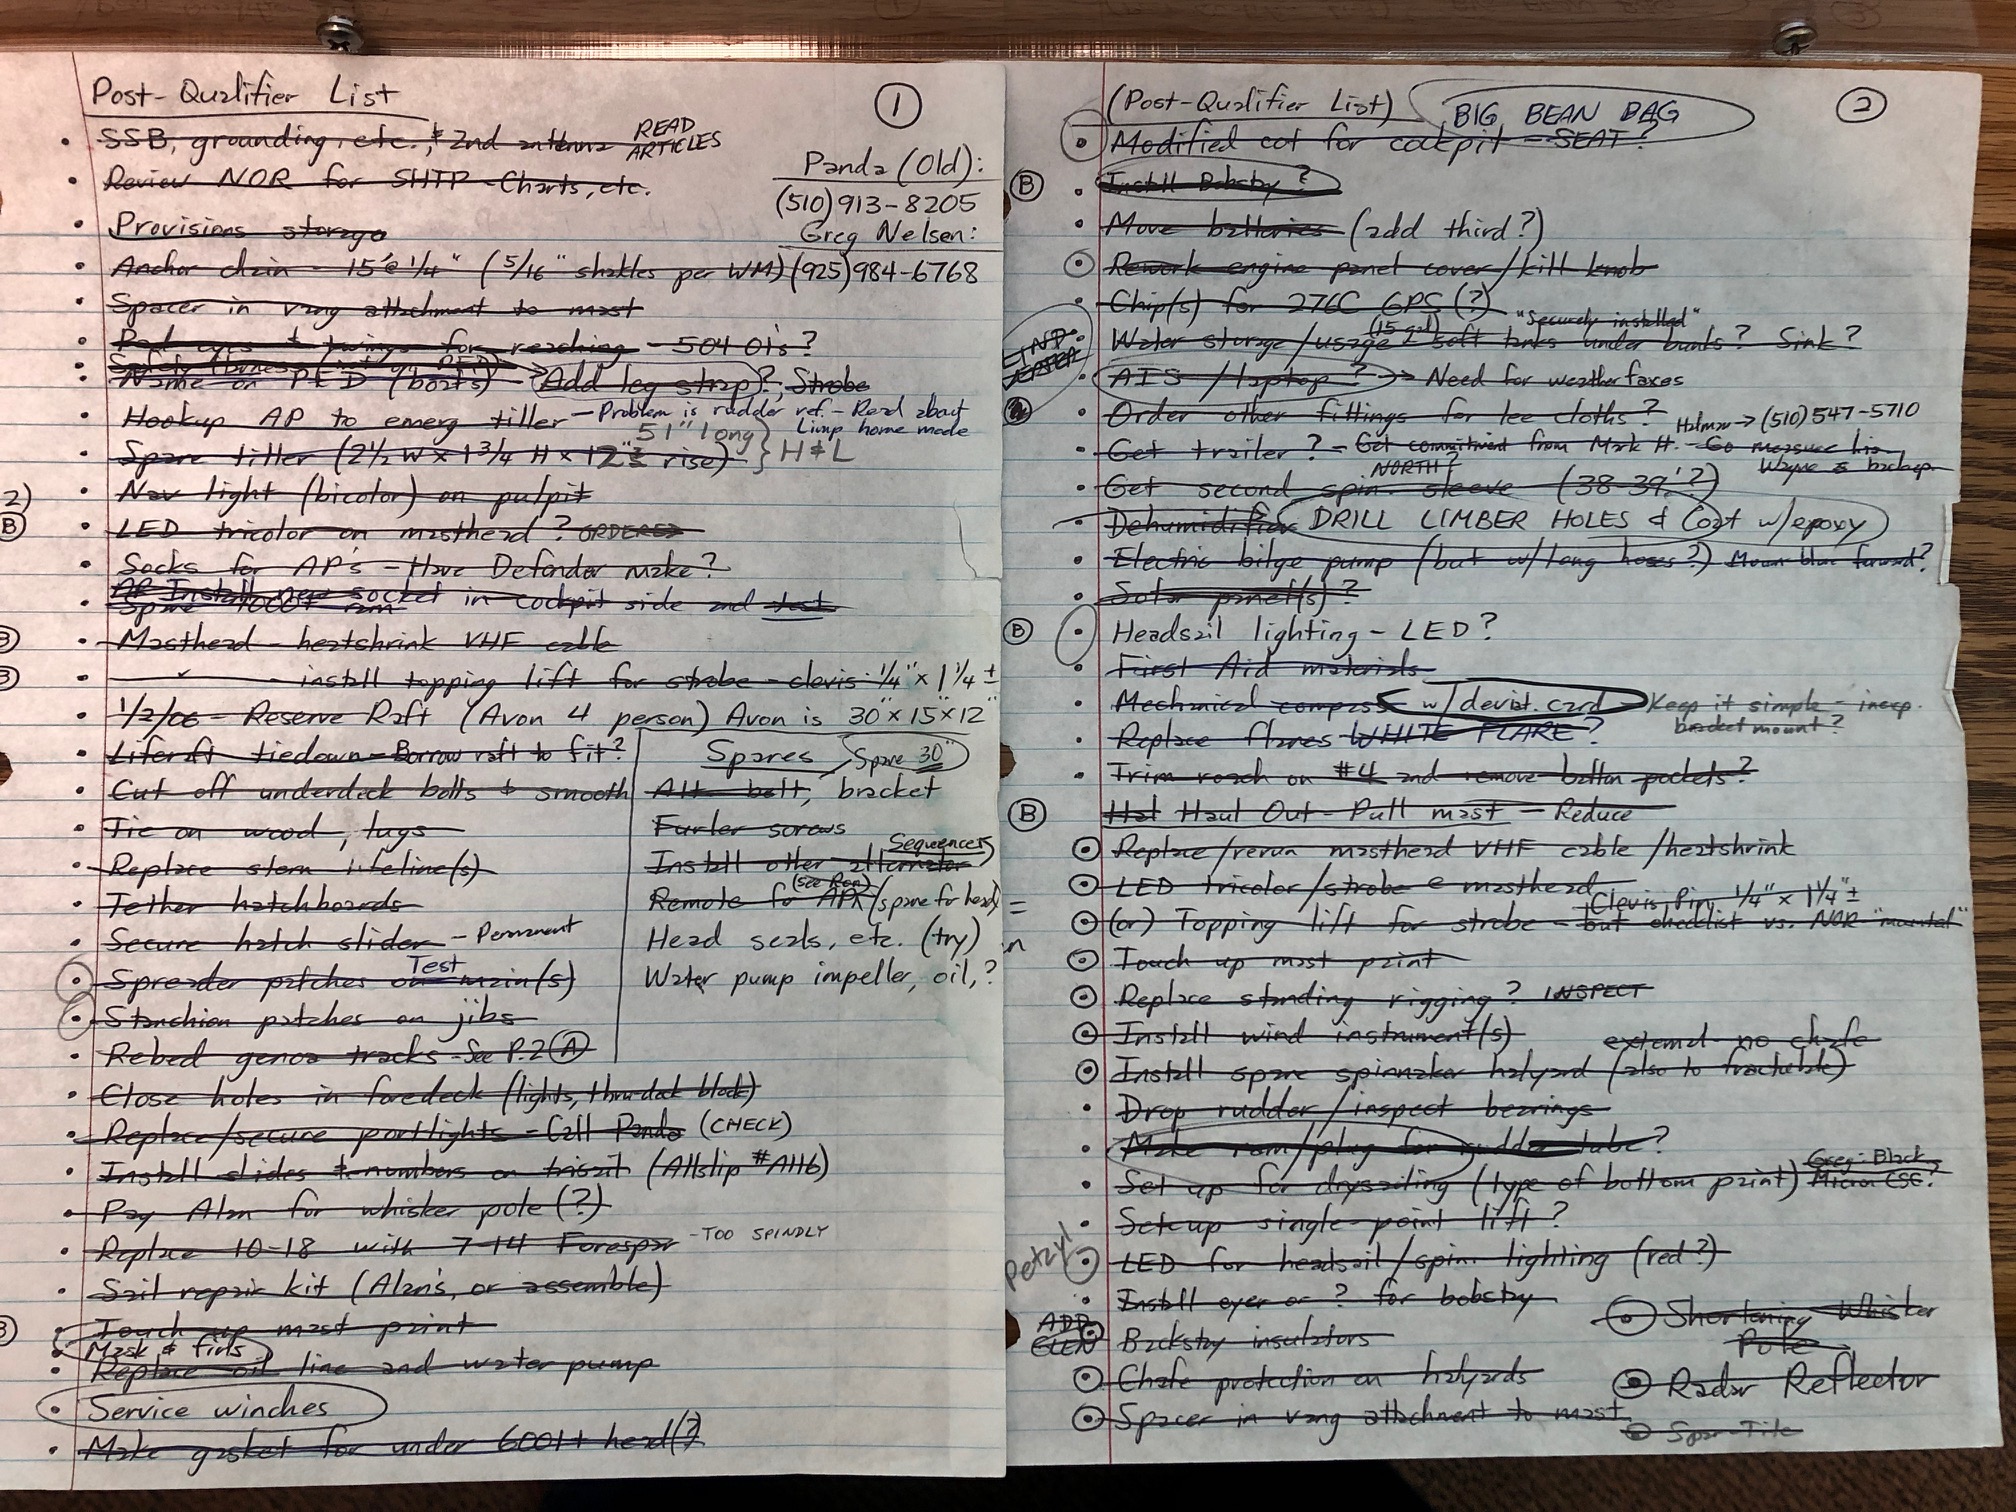 Post-Qualifier List
①
SSB, grounding, etc. & 2nd antenna READ ARTICLES
Review NOR for SHTP - Charts, etc.
Panda (Old):
(510) 913-8205
Provisions storage
Greg Nelsen:
Anchor chain - 15' @ 1/4" (5/16" shakles per WM) (925) 984-6768
Spacer in vang attachment to mast
Pad eyes & twings for reaching - 504 O1s?
Name on PFD (boats) - Add leg strap?, Strobe
Hookup AP to emerg tiller - Problem is rudder ref. - Read about Limp home mode
51" long
Spare tiller (2 1/2 W x 1 3/4 H x 12" rise) } H & L
2)
Nav light (bicolor) on pulpit
Ⓑ
LED tricolor on masthead? ORDERED
Socks for AP's - Have Defender make?
AP Install new socket in cockpit side and test
Masthead - heatshrink VHF cable
- install topping lift for strobe - clevis 1/4" x 1 1/4 ±
1/2/06 - Reserve Raft (Avon 4 person) Avon is 30" x 15" x 12"
Liferaft tiedown - Borrow raft to fit?
Cut off underdeck bolts & smooth
Tie on wood, lugs
Replace stern lifeline(s)
Tether hatchboards
Secure hatch slider - Permanent
Spreader patches on main(s) Test
Stanchion patches on jibs
Rebed genoa tracks - See P. 2 Ⓐ
Spares, Spare 30"
Alt. belt, bracket
Furler screws
Install other alternator Sequences
Remote for APX / spare for head) (see Ron)
Head seals, etc. (try)
Water pump impeller, oil, ?
Close holes in foredeck (lights, thrudeck block)
Replace/secure portlights - Call Panda (CHECK)
Install slides & numbers on trisail (Allslip #A116)
Pay Alan for whisker pole (?)
Replace 10-18 with 7-14 Forespar - TOO SPINDLY
Sail repair kit (Alan's, or assemble)
Touch up mast paint
Mask & fins
Replace oil line and water pump
Service winches
Make gasket for under 6001+ head (?)
(Post-Qualifier List) BIG BEAN BAG
②
Modified cot for cockpit - SEAT?
Ⓑ
Install Bobstay?
Move batteries (add third?)
Rework engine panel cover/kill knob
Chip(s) for 276C GPS (?)
Water storage/usage (15 gal) 2 soft tanks under bunks? Sink? "Securely installed"
AIS / laptop? → Need for weatherfaxes
Order other fittings for lee cloths?
Holmar → (510) 547-5710
Get trailer? - Get commitment from Mark H. - Go measure his Wayne is backup
Get second spin. sleeve (38-39'?) NORTH?
Dehumidifier DRILL LIMBER HOLES & Coat w/epoxy
Electric bilge pump (but w/long hoses?) Move blue forward?
Solar panel(s)?
Ⓑ
Headsail lighting - LED?
First Aid materials
Mechanical compass w/ deviat. card Keep it simple - inexp. bracket mount?
Replace flares WHITE FLARE?
Trim roach on #4 and remove batten pockets?
Ⓑ
Hal Haul Out - Pull mast - Reduce
Replace/rerun masthead VHF cable / heatshrink
LED tricolor/strobe @ masthead
Clevis Pin, 1/4" x 1 1/4" ±
(or) Topping lift for strobe - but checklist vs. NOR "mounted"
Touch up mast paint
Replace standing rigging? INSPECT
Install wind instrument(s)
external - no chafe
Install spare spinnaker halyard (also to fractional)
Drop rudder/inspect bearings
Make ram/plug for rudder tube?
Set up for drysailing (type of bottom paint) Greg: Black Micron CSC?
Set up single-point lift?
Petzyl
LED for headsail/spin. lighting (red?)
Install eyes or ? for bobstay
ADD GLEN
Backstay insulators
Chafe protection on halyards
Spacer in vang attachment to mast
Shortening Whisker Pole
Radar Reflector
Spar-Tite